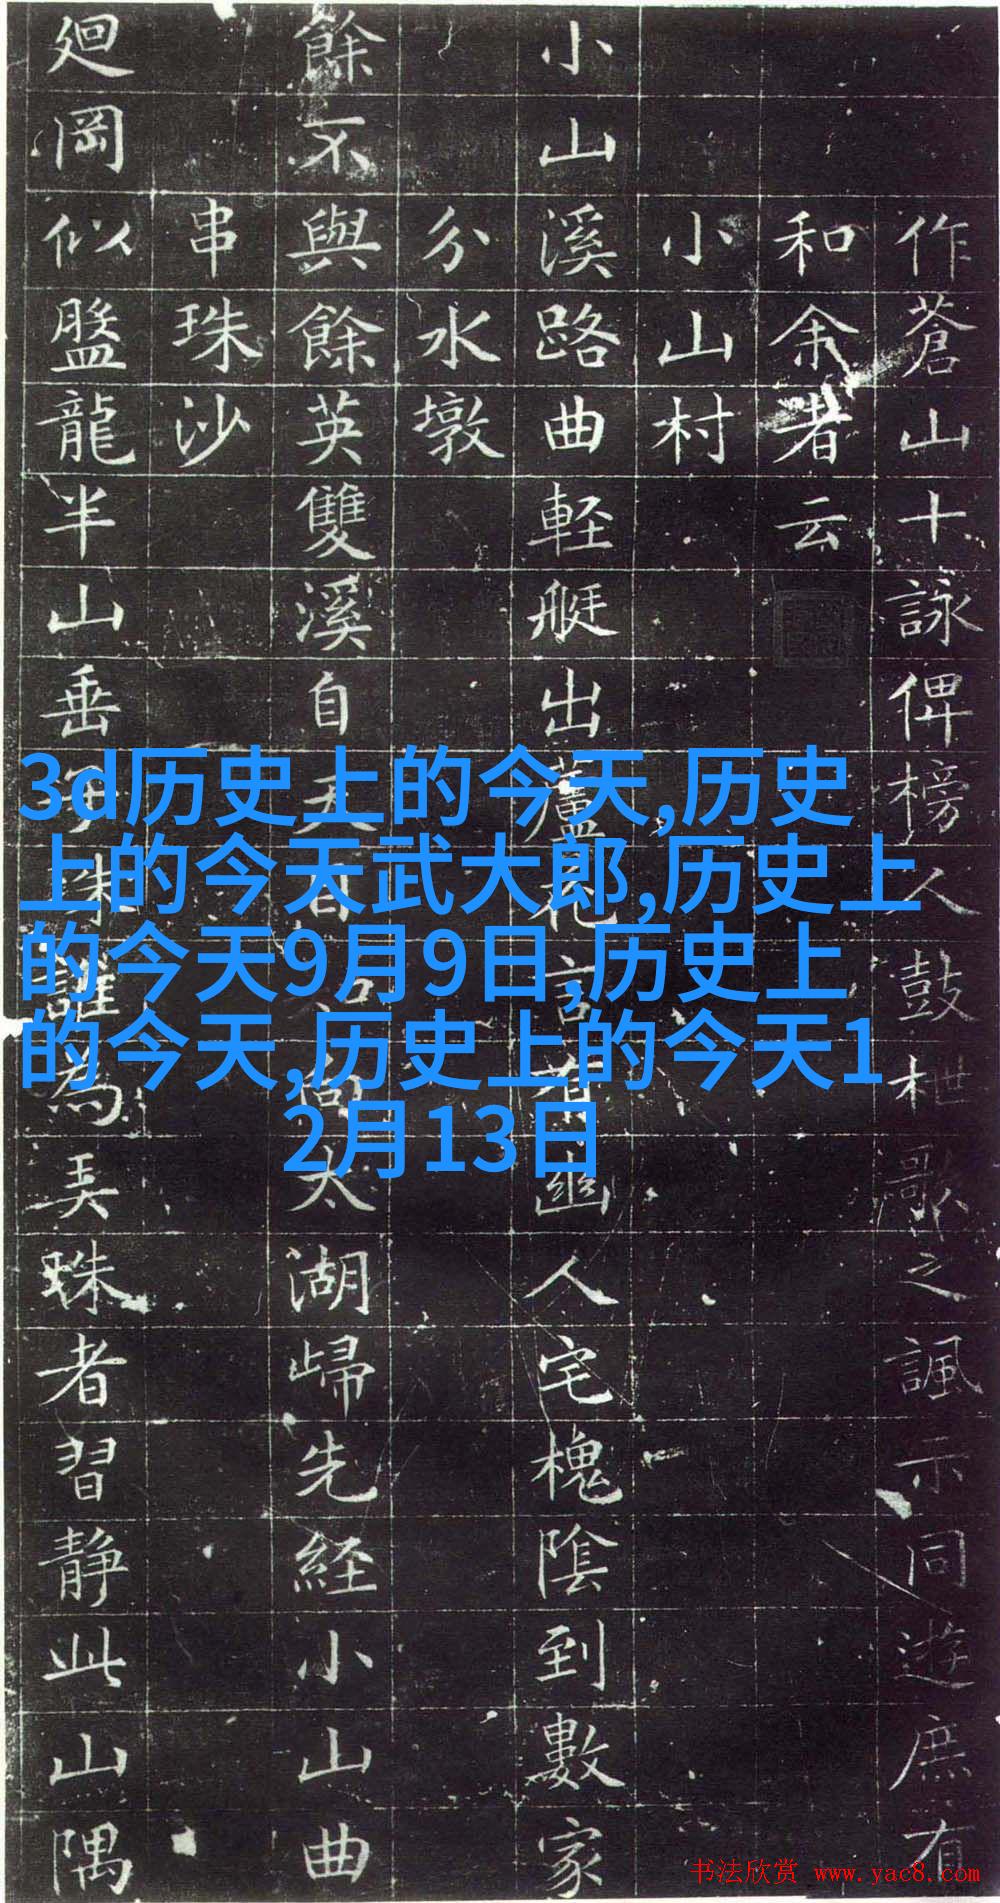 作蒼山十詠俾榜人鼓枻歌之諷示同遊庶有
和余者云
小山村
小山溪路曲軽艇出蘆花言有幽人宅槐陰到數家
分水墩
餘不與餘英雙溪自天目尚太湖歸先経小山曲
串珠沙
廻岡似盤龍半山垂珠誰為弄珠者習静此山隅
3d历史上的今天,历史
上的今天武大郎,历史上
的今天9月9日,历史上
的今天,历史上的今天1
2月13日
书法欣赏 www.yac8.com